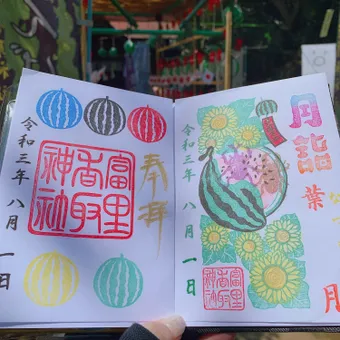 奉拝
富里
香取
神社
令和三年 八月 一日
月詣
葉月
令和三年 八月 一日
富里
香取
神社